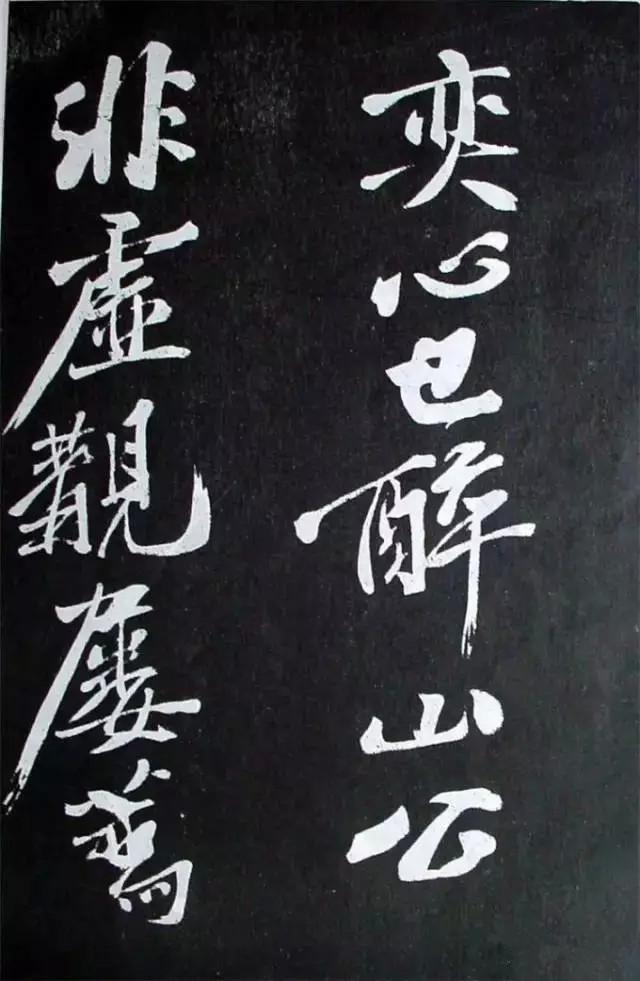 奕心已醉山公
非虛觀屢